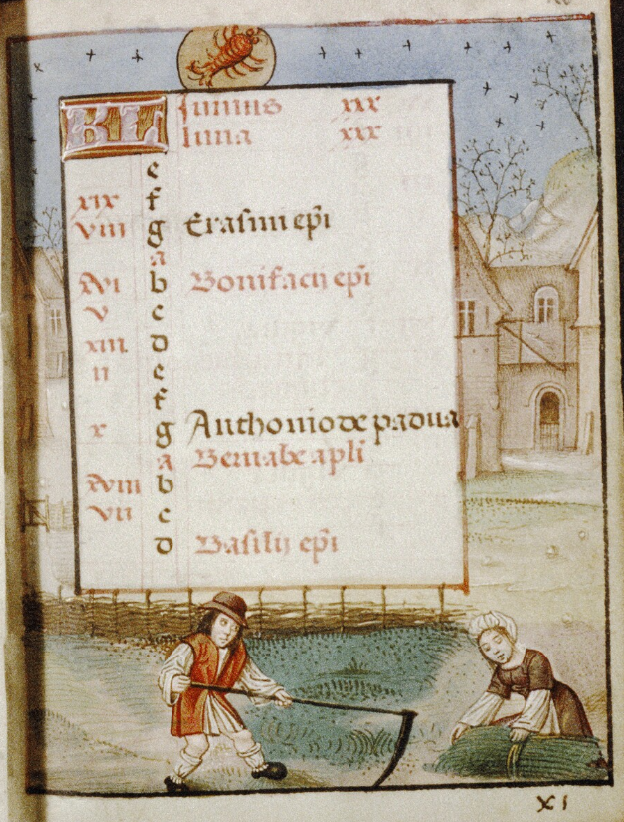 KL Junius xxx
luna xxx
e
xix f
viii g Erasmi epi
a
xvi b Bonifacii epi
v c
xiii d
ii e
f
x g Anthonio de padua
a Bernabe apli
xviii b
vii c
d Basilii epi
XI